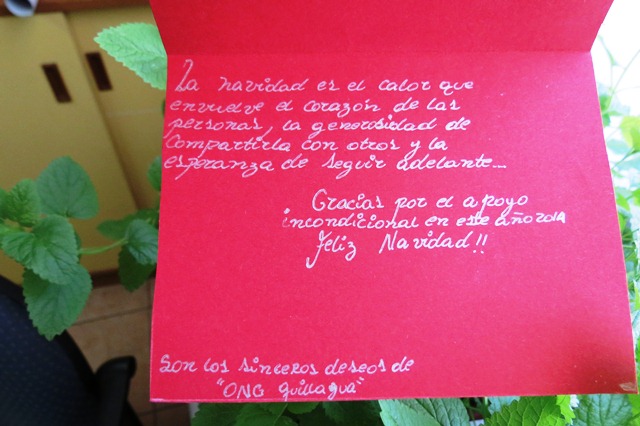 La navidad es el calor que
envuelve el corazón de las
personas, la generosidad de
compartirla con otros y la
esperanza de seguir adelante...
Gracias por el apoyo
incondicional en este año 2014
Feliz Navidad!!
Son los sinceros deseos de
"ONG Quillagua"